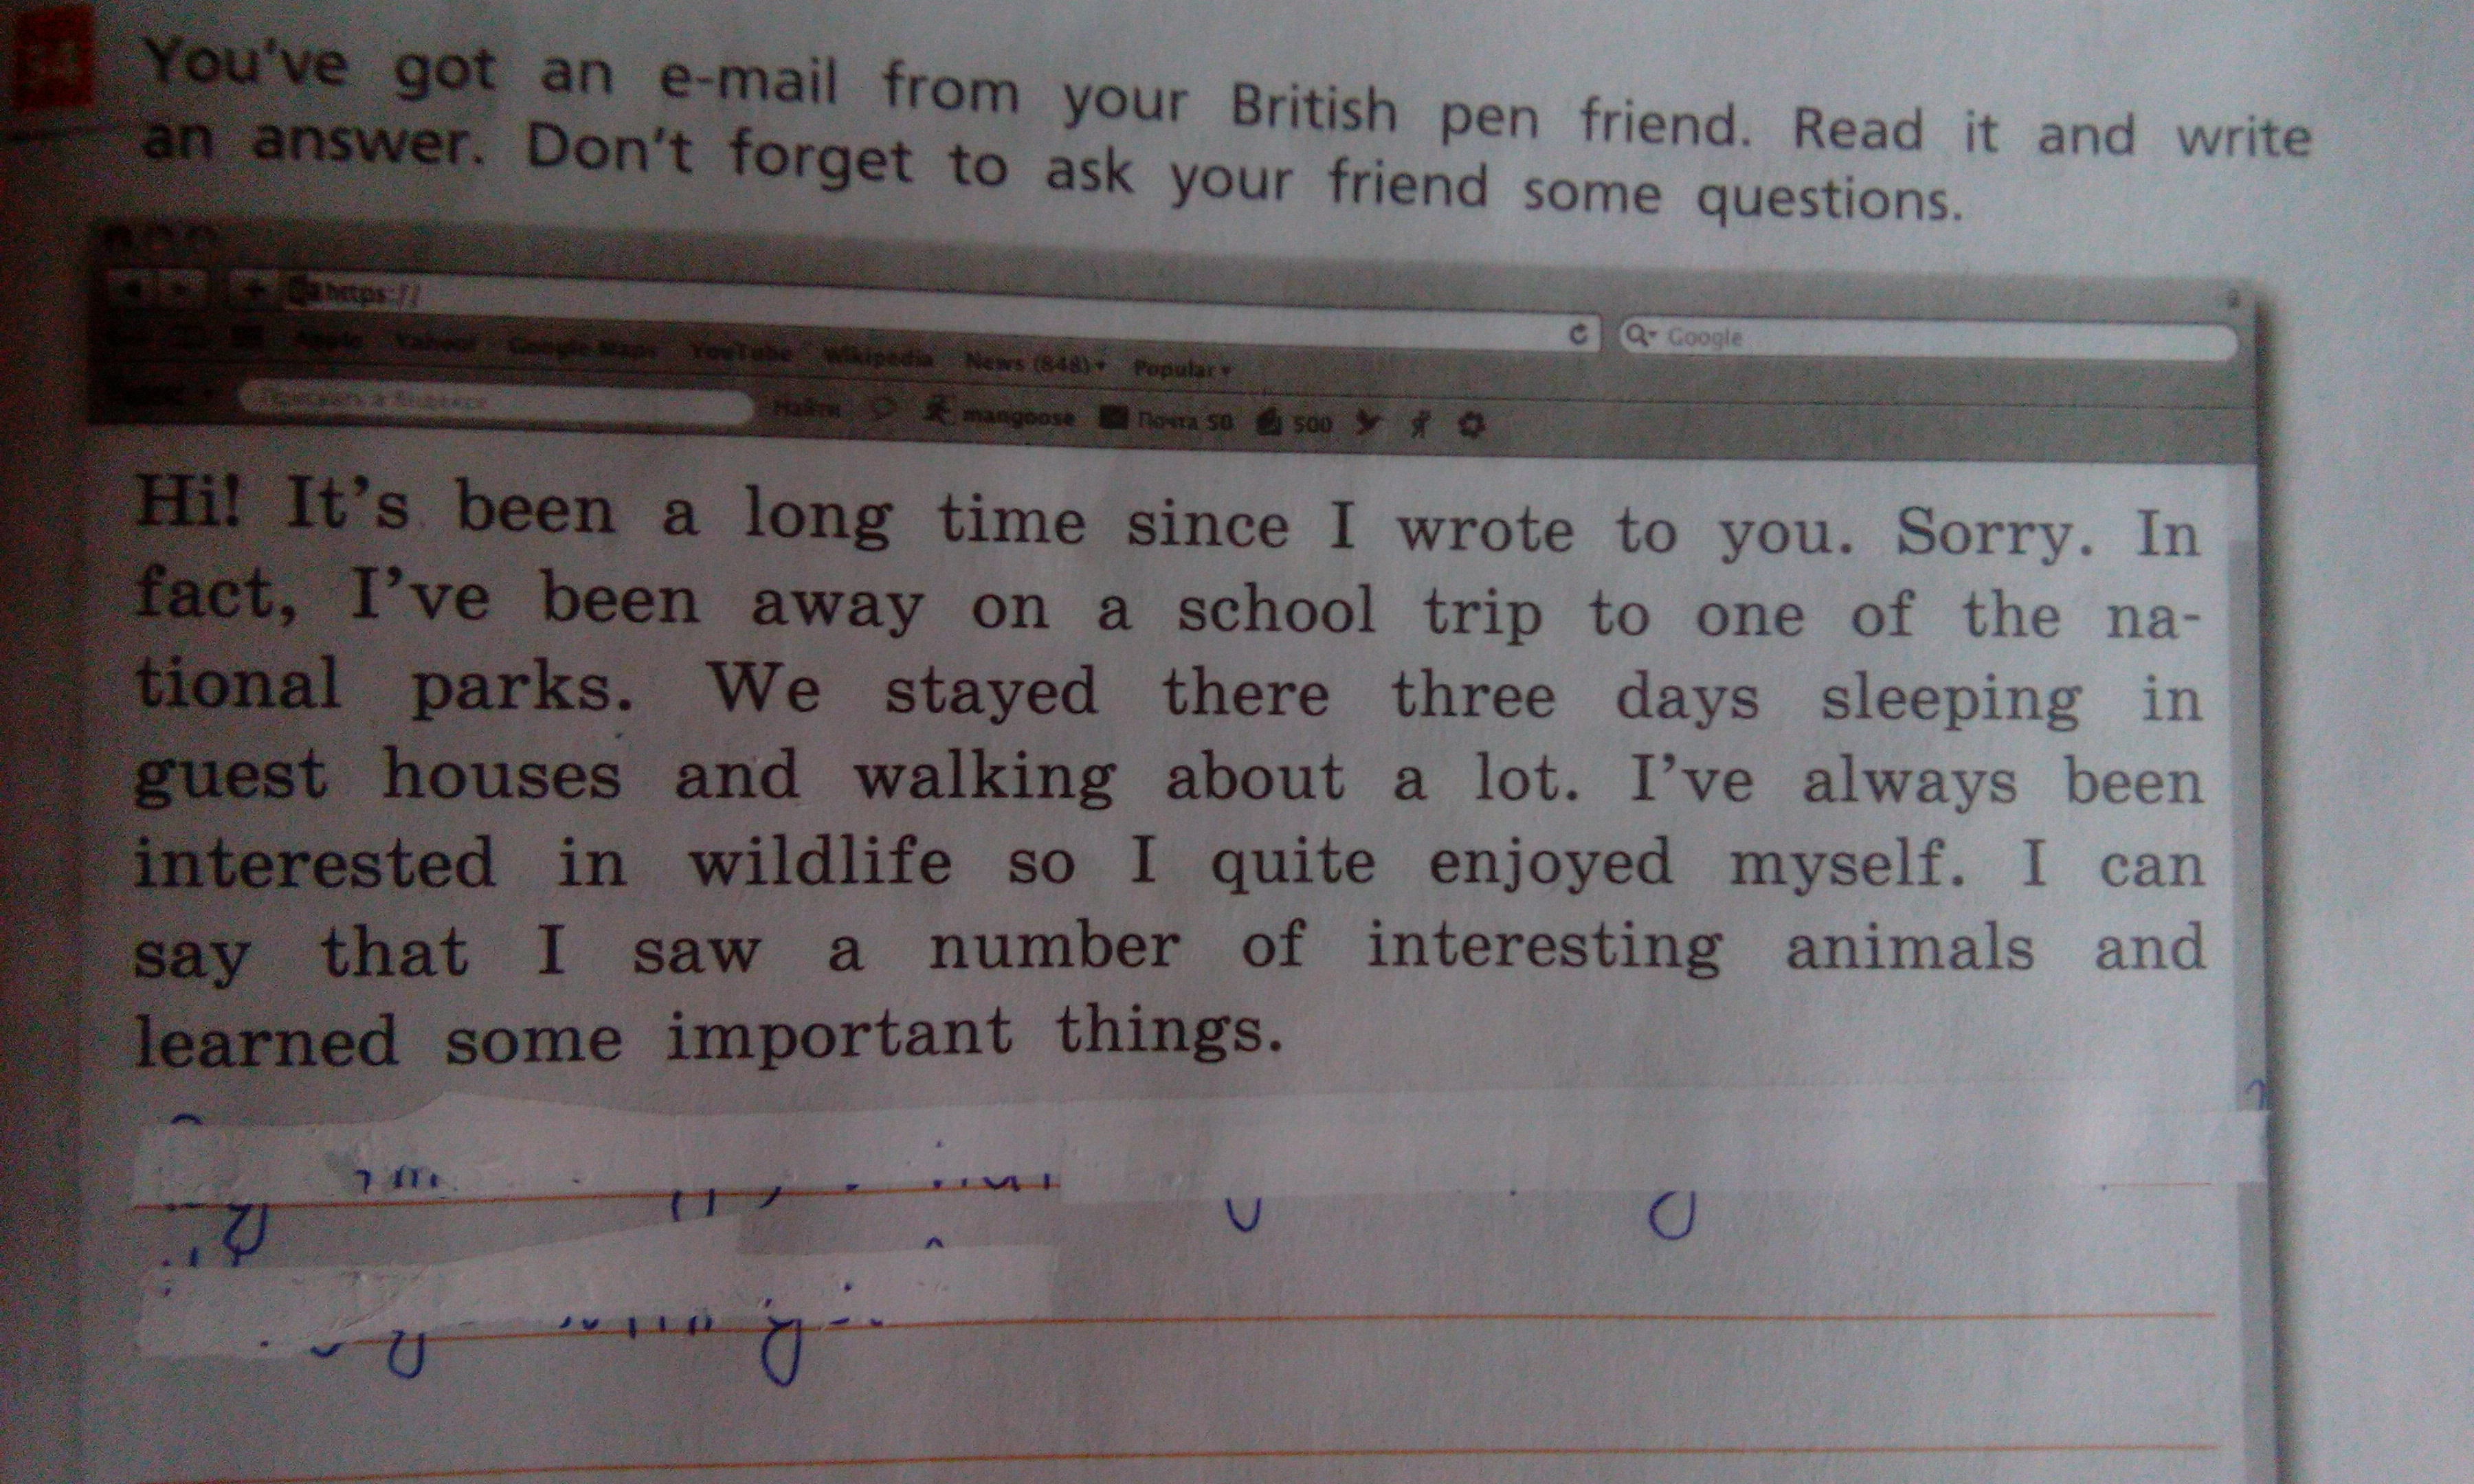 34 You've got an e-mail from your British pen friend. Read it and write
an answer. Don't forget to ask your friend some questions.
https://
Google
Apple Yahoo! Google Maps YouTube Wikipedia News (848) Popular
Найти mangoose Почта 50 500
Hi! It's been a long time since I wrote to you. Sorry. In
fact, I've been away on a school trip to one of the na-
tional parks. We stayed there three days sleeping in
guest houses and walking about a lot. I've always been
interested in wildlife so I quite enjoyed myself. I can
say that I saw a number of interesting animals and
learned some important things.